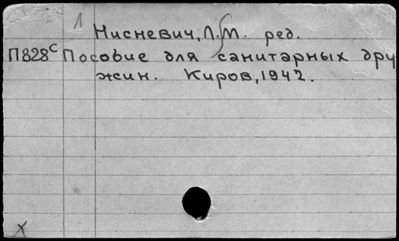 1
Нисневич, Л.М. ред.
П828с Пособие для санитарных дру
жин. Киров, 1942.
X